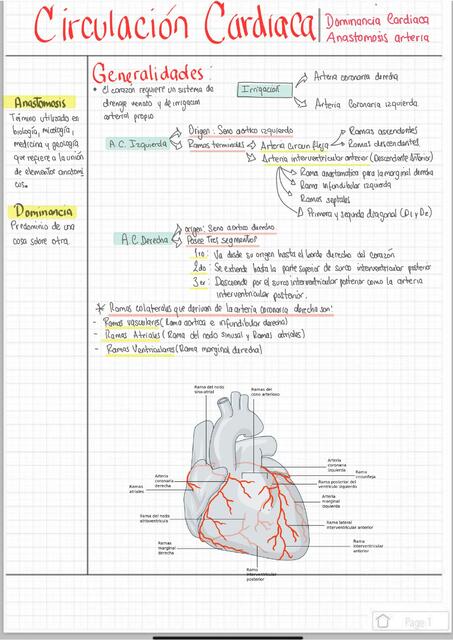 Circulación Cardiaca
Dominancia Cardiaca
Anastomosis arteria
Generalidades:
* El corazón requiere un sistema de
drenge venoso y de irrigación
arterial propio
Irrigación
Arteria coronaria derecha
Arteria Coronaria izquierda
Anastomosis
Término utilizado en
biología, micología,
medicina y geología
que refiere a la unión
de elementos anatómi
cos.
Dominancia
Predominio de una
cosa sobre otra.
A.C. Izquierda
Origen: Seno aórtico izquierdo
Ramas terminales
Arteria circunfleja
Ramas ascendentes
Ramas descendentes
Arteria interventricular anterior (Descendente Anterior)
Rama anastomótica para la marginal derecha
Rama infundibular izquierda
Ramas septales
Primera y segunda diagonal (D1 y D2)
A.C Derecha
origen: Seno aórtico derecho
Posee Tres segmentos
1ro: Va desde su origen hasta el borde derecho del corazón
2do: Se extiende hasta la parte superior de surco interventricular posterior
3er: Desciende por el surco interventricular posterior como la arteria
interventricular posterior.
* Ramas colaterales que derivan de la arteria coronaria derecha son:
- Ramas vasculares (Rama aórtica e infundibular derecha)
- Ramas Atriales (Rama del nodo sinusal y Ramas atriales)
- Ramas Ventriculares (Rama marginal derecha)
Rama del nodo
sino-atrial
Ramas del
cono arterioso
Arteria
coronaria
derecha
Ramas
atriales
Rama del nodo
atrioventricula
Ramas
marginal
derecha
Rama
interventricular
posterior
Arteria
coronaria
izquierda
Rama
circunfleja
Rama posterior del
ventrículo izquierdo
Arteria
marginal
izquierda
Rama lateral
interventricular anterior
Rama
interventricular
anterior
Page 1